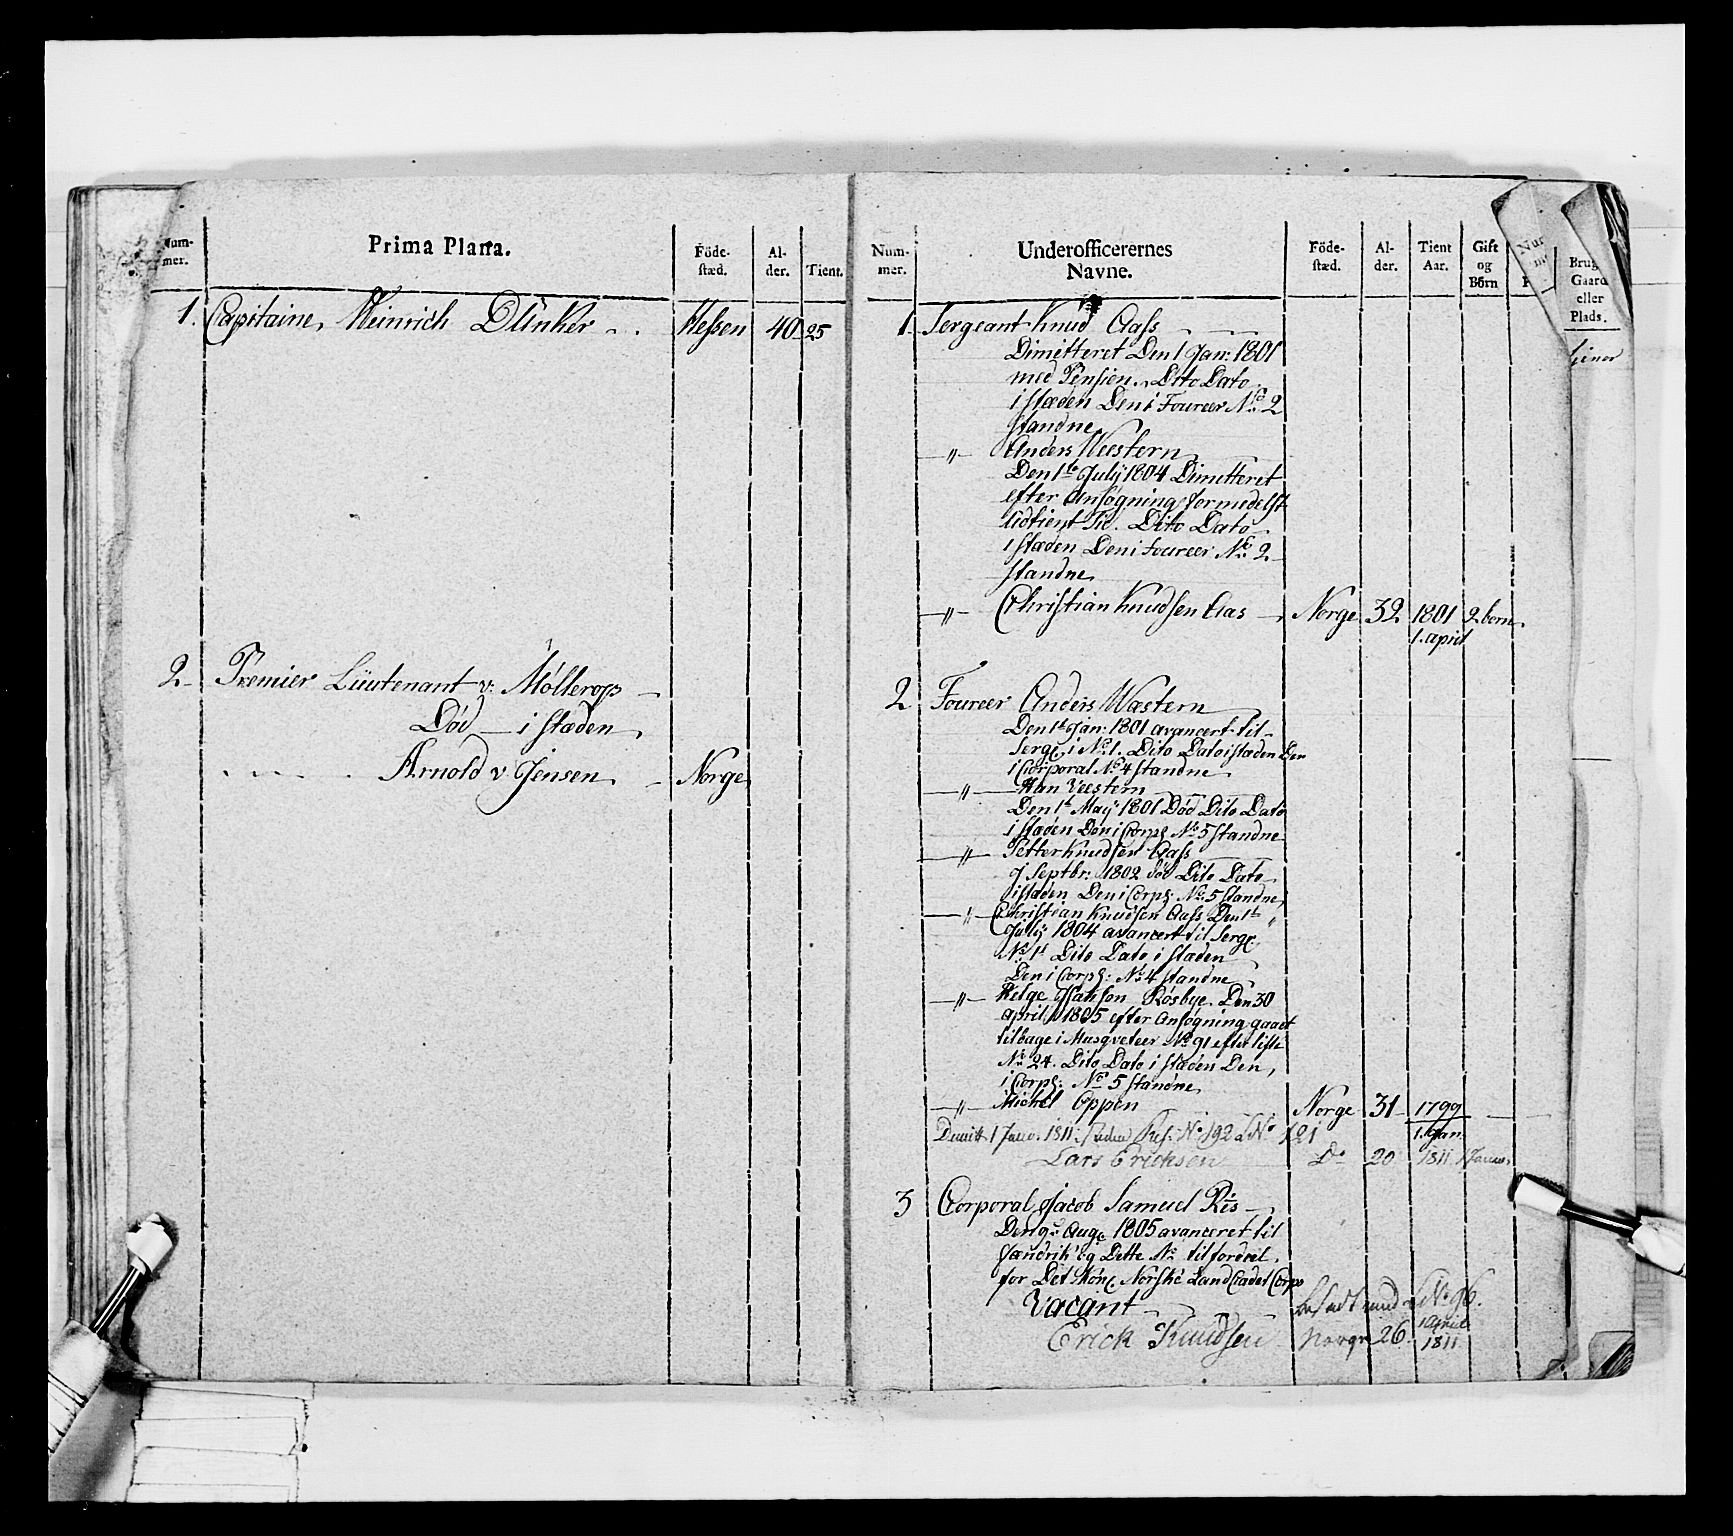 Num-
mer.
Prima Plana.
Föde-
stæd.
Al-
der.
Tient.
1. Capitaine Heinrich Dunker Hessen 40 25
2 Premier Lüutenant v: Möllerop
Död i stæden
Arnold v Jensen Norge
Num-
mer.
Underofficerernes
Navne.
Föde-
stæd.
Al-
der.
Tient
Aar.
Gift
og
Börn
Brug
Gaard
eller
Plads.
1. Sergeant Knud Aass
Dimitteret Den 1 Jan: 1801
med Pension. Dito Dato
i stæden Den i Foureer No 2
standne
" Anders Weestern
Den 1te July 1804 Dimitteret
efter Ansøgning formedelst
Udtient Tid. Dito Dato
i stæden Den i Foureer No 2
standne
" Christian Knudsen Aas Norge 32 1801 2 born
1. april
2 Foureer Anders Wæstern
Den 1te Jan: 1801 avancert til
Serg: i No 1. Dito Dato i stæden Den
i Corporal No 4 standne
" Han Veestern
Den 1te May 1801 Död Dito Dato
i stæden Den i Corpl No 5 standne
" Petter Knudsen Aass
Septbr: 1802 död Dito Dato
i stæden Den i Corpl: No 5 standne
" Christian Knudsen Aass Den 1te
July 1804 avancert til Serg:
No 1 Dito Dato i stæden
Den i Corpl: No 4 standne
" Helge Isaksen Rösbye. Den 30
april 1805 efter Ansøgning gaaet
tilbage i Musqveteer No 91 efter liste
No 24. Dito Dato i stæden Den
i Corpl: No 5 standne
" Michel Oppen Norge 31 1799
1. Jan.
Dimitt 1 Janv. 1811 No 192 No 121
Lars Ericksen Do 20 1811 1 Janv.
3 Corporal Jacob Samuel Riis
Den 9de Aug: 1805 avanceret til
Fændrik og Dette No til fordeel
for Det Kong: Norske Land Cadet Corps
Vacant besadt med No 96.
Erick Knudsen Norge 26 1 April
1811